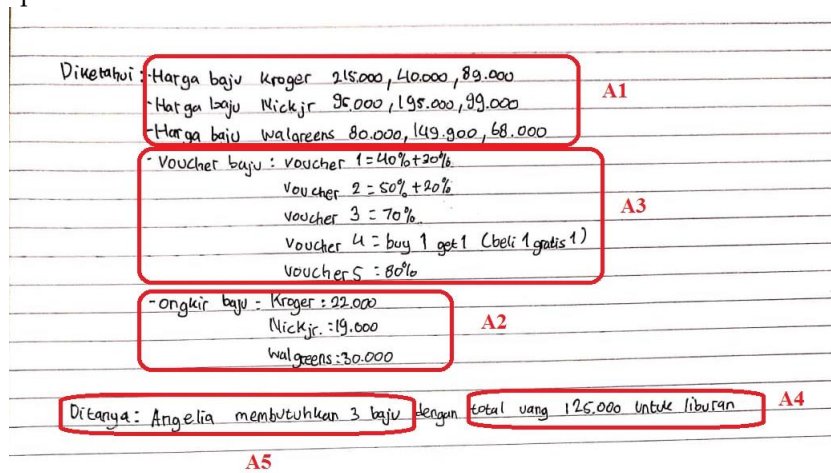 Diketahui : -Harga baju Kroger 215.000, 40.000, 89.000
A1
-Harga baju Nickjr 95.000, 195.000, 99.000
-Harga baju walgreens 80.000, 149.900, 68.000
- Voucher baju : voucher 1 = 40% + 20%
voucher 2 = 50% + 20%
A3
voucher 3 = 70%
voucher 4 = buy 1 get 1 (beli 1 gratis 1)
voucher 5 = 80%
- ongkir baju = Kroger : 22.000
Nickjr. : 19.000
A2
walgreens : 30.000
Ditanya : Angelia membutuhkan 3 baju dengan total uang 125.000 untuk liburan
A4
A5